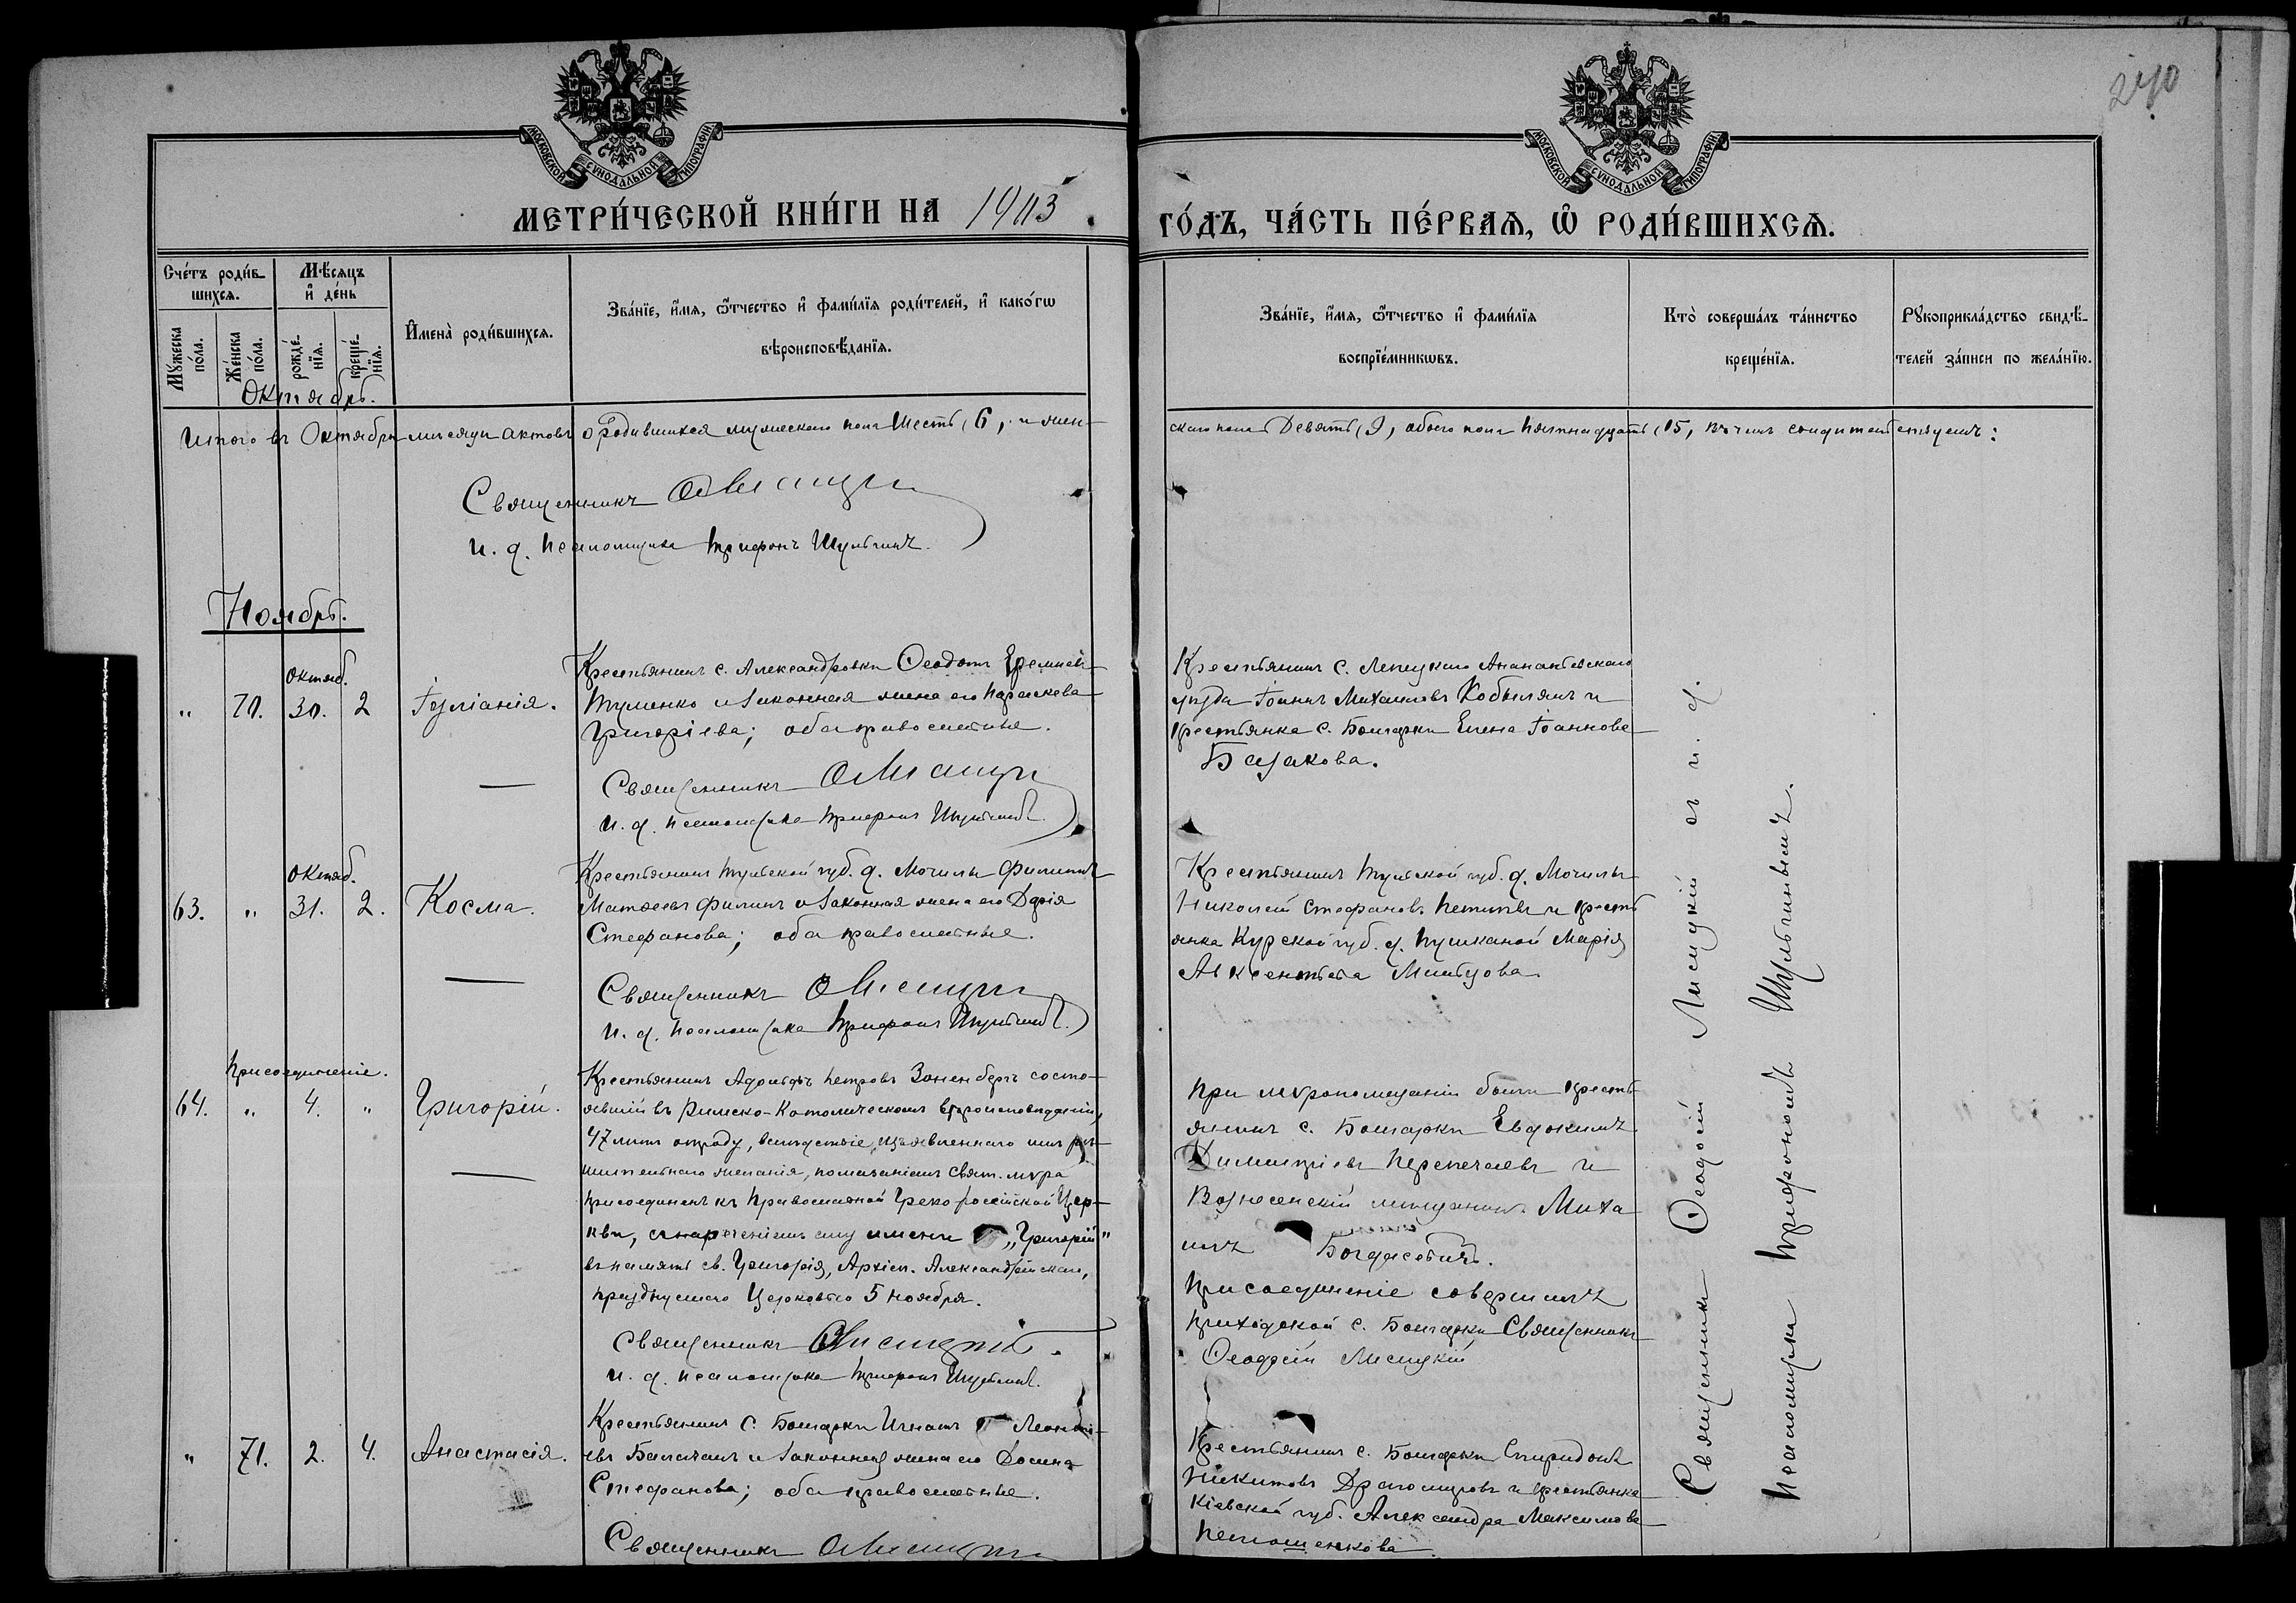 240
МОСКОВСКОЙ СѴНОДАЛЬНОЙ ТИПОГРАФІИ
МОСКОВСКОЙ СѴНОДАЛЬНОЙ ТИПОГРАФІИ
МЕТРИ́ЧЕСКОЙ КНИ́ГИ НА 1903 ГО́ДЪ, ЧА́СТЬ ПЕ́РВАѦ, Ѡ РОДИ́ВШИХСѦ.
Счéтъ роди́вшихсѧ.
Мѣ́сѧцъ и҆ дéнь
Мꙋ́жеска по́ла.
Жéнска по́ла.
рождé-нїѧ.
крещé-нїѧ.
И҆мена̀ роди́вшихсѧ.
Зва́нїе, и҆́мѧ, ѻ҆́тчество и҆ фами́лїѧ роди́телей, и҆ како́гѡ
вѣроисповѣ́данїѧ.
Зва́нїе, и҆́мѧ, ѻ҆́тчество и҆ фами́лїѧ
воспрїéмникѡвъ.
Кто̀ соверша́лъ та́инство
крещéнїѧ.
Рꙋкоприкла́дство свидѣ́-
телей за́писи по жела́нїю.
Октябрь.
Итого въ Октябрѣ мѣсяцѣ актовъ о родившихся мужескаго пола шесть, 6, и жен-
скаго пола девять, 9, обоего пола пятнадцать, 15, въ чемъ свидѣтельствуемъ:
Священникъ Ѳ Лисицкій
и. д. псаломщика Трифонъ Шульгинъ.
Ноябрь.
октяб.
" 70. 30. 2 Іуліанія.
Крестьянинъ с. Александровки Ѳеодотъ Еремѣевъ
Туменко и законная жена его Параскева
Григоріева; оба православные.
Священникъ Ѳ Лисицкій
и. д. псаломщика Трифонъ Шульгинъ.
Крестьянинъ с. Липецкаго Ананьевскаго
уѣзда Іоаннъ Михаиловъ Кобылянъ и
крестьянка с. Болгарки Елена Іоаннова
Базакова.
октяб.
63. " 31. 2. Косма.
Крестьянинъ Тульской губ. д. Мочилы Филиппъ
Матѳеевъ Филинъ и законная жена его Дарія
Стефанова; оба православные.
Священникъ Ѳ Лисицкій
и. д. псаломщика Трифонъ Шульгинъ.
Крестьянинъ Тульской губ. д. Мочилы
Николай Стефановъ и кресть
янка Курской губ. д. Пушканой Марія
Авксентьева
Присоединеніе.
64. " 4. " Григорій.
Крестьянинъ Адольфъ Петровъ Зоненбергъ состо-
явшій въ Римско-Католическомъ вѣроисповѣданіи,
47 лѣтъ отроду, вслѣдствіе изъявленнаго имъ рѣ-
шительнаго желанія, помазаніемъ Свят. мѵра
присоединенъ къ Православной Греко-россійской Цер-
кви, съ нареченіемъ ему имени „Григорій"
въ память св. Григорія, Архіеп. Александрійскаго,
празднуемаго Церковью 5 ноября.
Священникъ Ѳ Лисицкій.
и. д. псаломщика Трифонъ Шульгинъ.
При мѵропомазаніи были кресть
янинъ с. Болгарки Евдокимъ
Димитріевъ Перепечаевъ и
Вознесенскій мѣщанинъ Миха
илъ Богдасевичъ.
Присоединеніе совершилъ
приходской с. Болгарки Священникъ
Ѳеодосій Лисицкій
" 71. 2. 4. Анастасія.
Крестьянинъ с. Болгарки Игнатъ Леонть-
евъ и законная жена его Домна
Стефанова; оба православные.
Священникъ Ѳ Лисицкій
Крестьянинъ с. Болгарки Спиридонъ
Никитовъ Драгомировъ и крестьянка
Кіевской губ. Александра Максимова
Священникъ Ѳеодосій Лисицкій съ и. д.
Псаломщика Трифономъ Шульгинымъ.